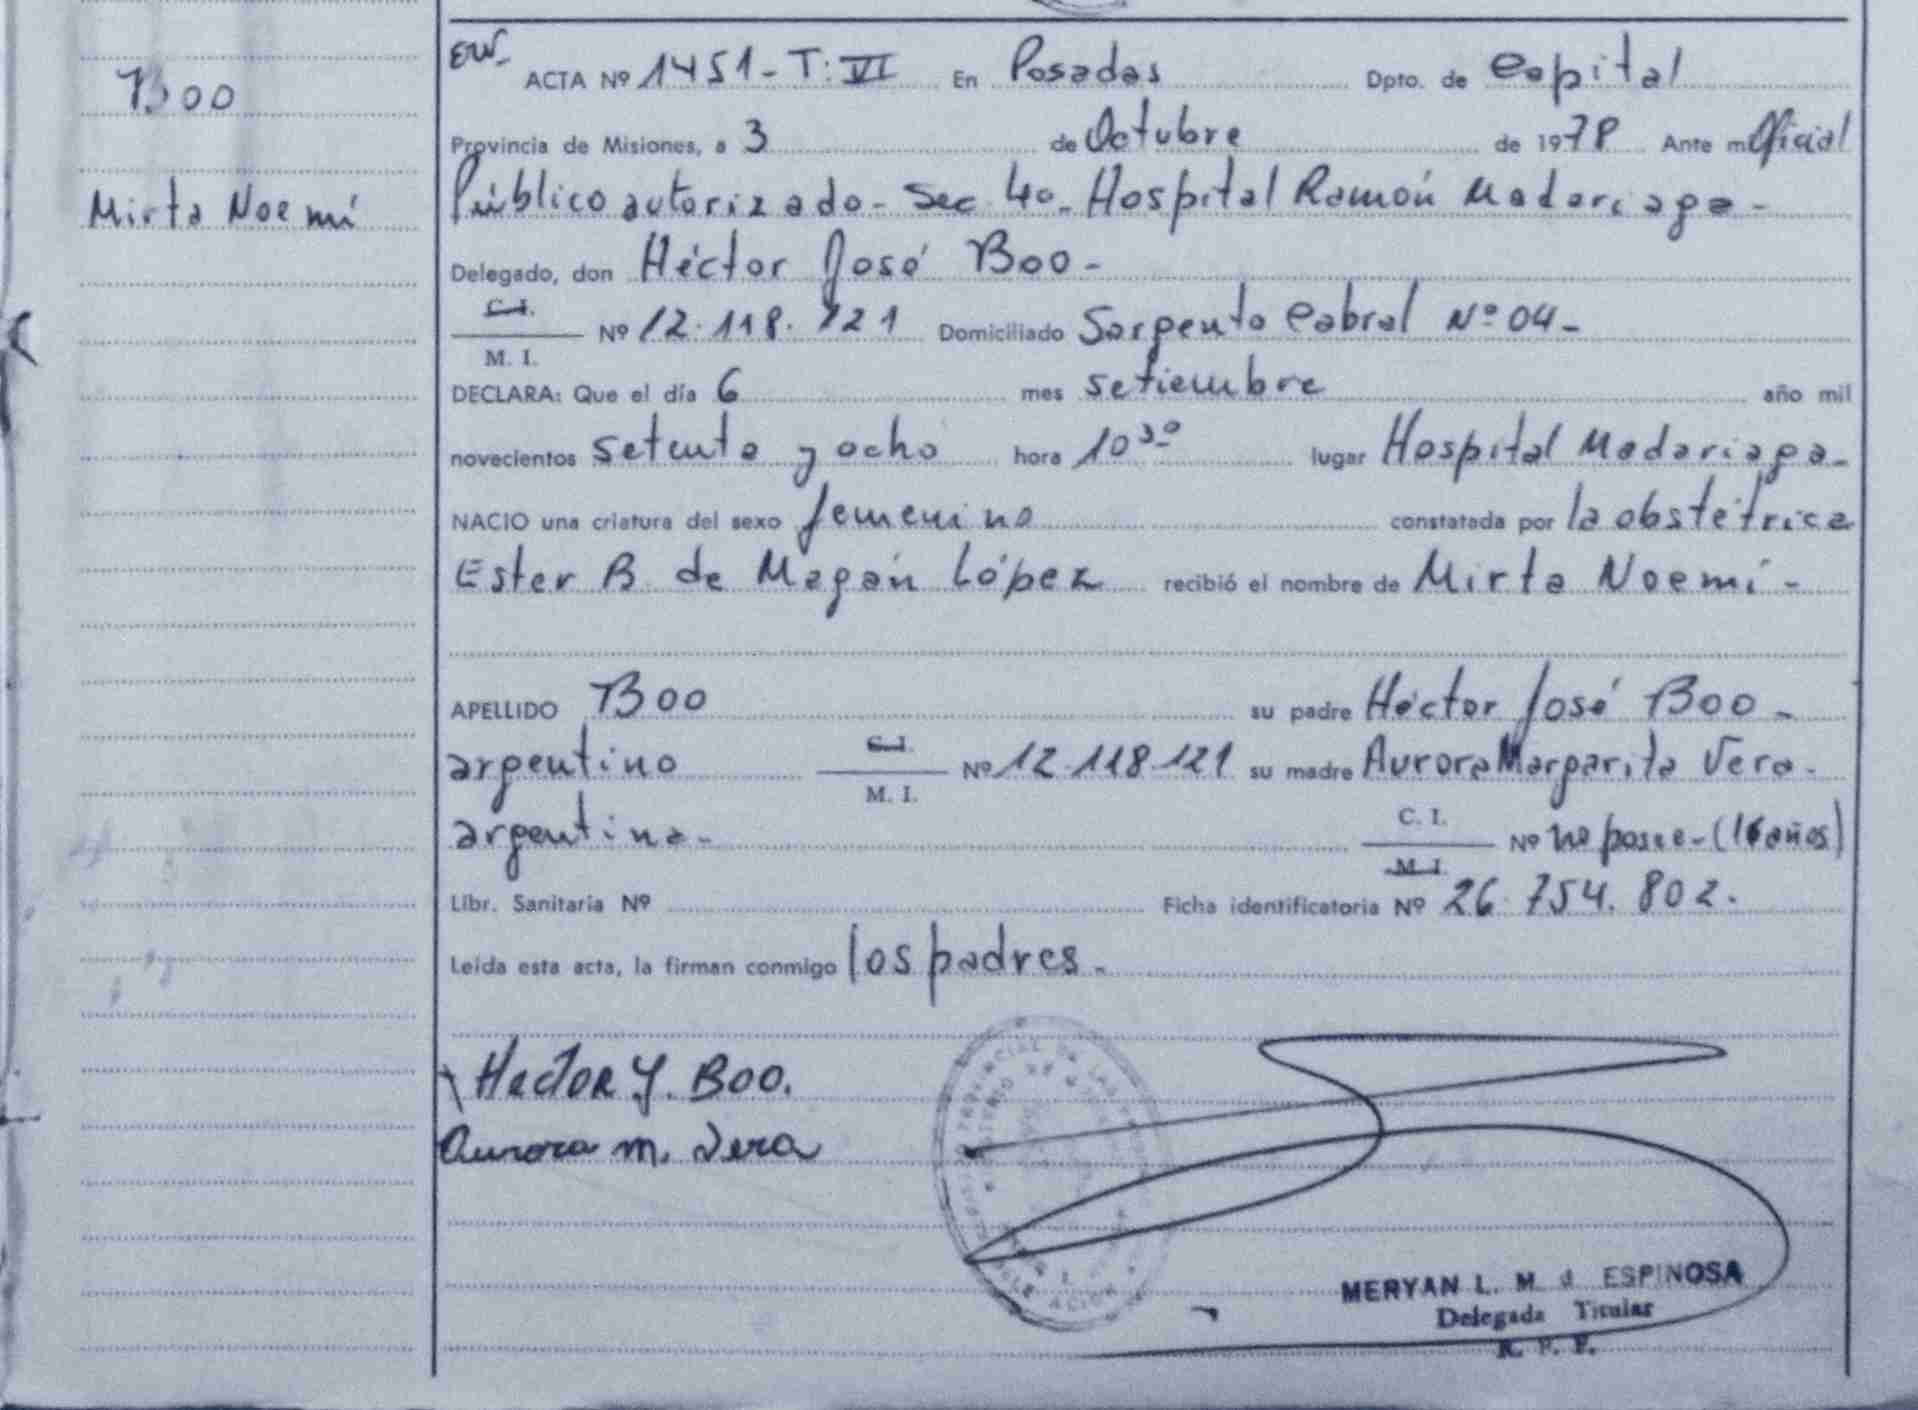 Boo
Mirta Noemí
ACTA Nº 1451 - T: VI En Posadas Dpto. de Capital
Provincia de Misiones, a 3 de Octubre de 1978 Ante m Oficial
Público autorizado - Sec 4º - Hospital Ramón Madariaga -
Delegado, don Héctor José Boo -
C. I.
Nº 12.118.121 Domiciliado Sargento Cabral Nº 04 -
M. I.
DECLARA: Que el día 6 mes setiembre año mil
novecientos setenta y ocho hora 10 30 lugar Hospital Madariaga -
NACIO una criatura del sexo femenino constatada por la obstétrica
Ester B. de Magán López recibió el nombre de Mirta Noemí -
APELLIDO Boo su padre Héctor José Boo -
argentino C. I. M. I. Nº 12.118.121 su madre Aurora Margarita Vera -
argentina - C. I. M. I. Nº no posee - (16 años)
Libr. Sanitaria Nº Ficha identificatoria Nº 26.754.802.
Leída esta acta, la firman conmigo los padres -
Hector J. Boo.
Aurora m. Vera
MERYAN L. M d ESPINOSA
Delegada Titular